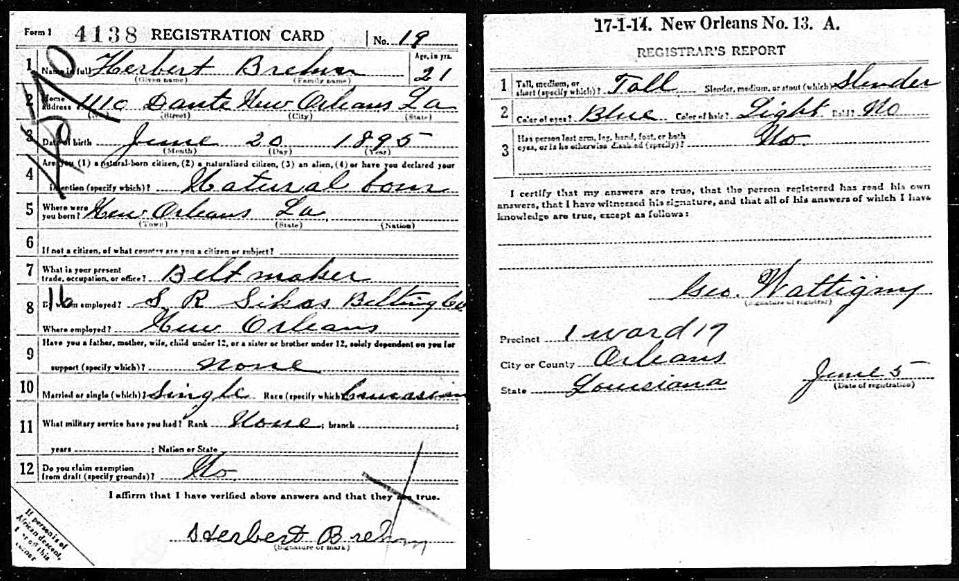 Form 1 4138 REGISTRATION CARD No. 19
1 Name in full Herbert Brehm Age, in yrs. 21
(Given name) (Family name)
2 Home address 1110 Dante New Orleans La
(No.) (Street) (City) (State)
3 Date of birth June 20 1895
(Month) (Day) (Year)
4 Are you (1) a natural-born citizen, (2) a naturalized citizen, (3) an alien, (4) or have you declared your
intention (specify which)? Natural born
5 Where were you born? New Orleans La
(Town) (State) (Nation)
6 If not a citizen, of what country are you a citizen or subject?
7 What is your present trade, occupation, or office? Belt maker
16
8 By whom employed? S R Sikes Belting Co
Where employed? New Orleans
9 Have you a father, mother, wife, child under 12, or a sister or brother under 12, solely dependent on you for
support (specify which)? none
10 Married or single (which)? Single Race (specify which)? Caucasian
11 What military service have you had? Rank None ; branch
years ; Nation or State
12 Do you claim exemption from draft (specify grounds)? No
I affirm that I have verified above answers and that they are true.
Herbert Brehm
(Signature or mark)
If person is of
African descent,
off this
corner
17-1-14. New Orleans No. 13. A.
REGISTRAR'S REPORT
1 Tall, medium, or short (specify which)? Tall Slender, medium, or stout (which)? Slender
2 Color of eyes? Blue Color of hair? Light Bald? No
3 Has person lost arm, leg, hand, foot, or both
eyes, or is he otherwise disabled (specify)? No.
I certify that my answers are true, that the person registered has read his own
answers, that I have witnessed his signature, and that all of his answers of which I have
knowledge are true, except as follows:
Geo. Wattigny
(Signature of registrar)
Precinct 1 ward 17
City or County Orleans
State Louisiana June 5
(Date of registration)